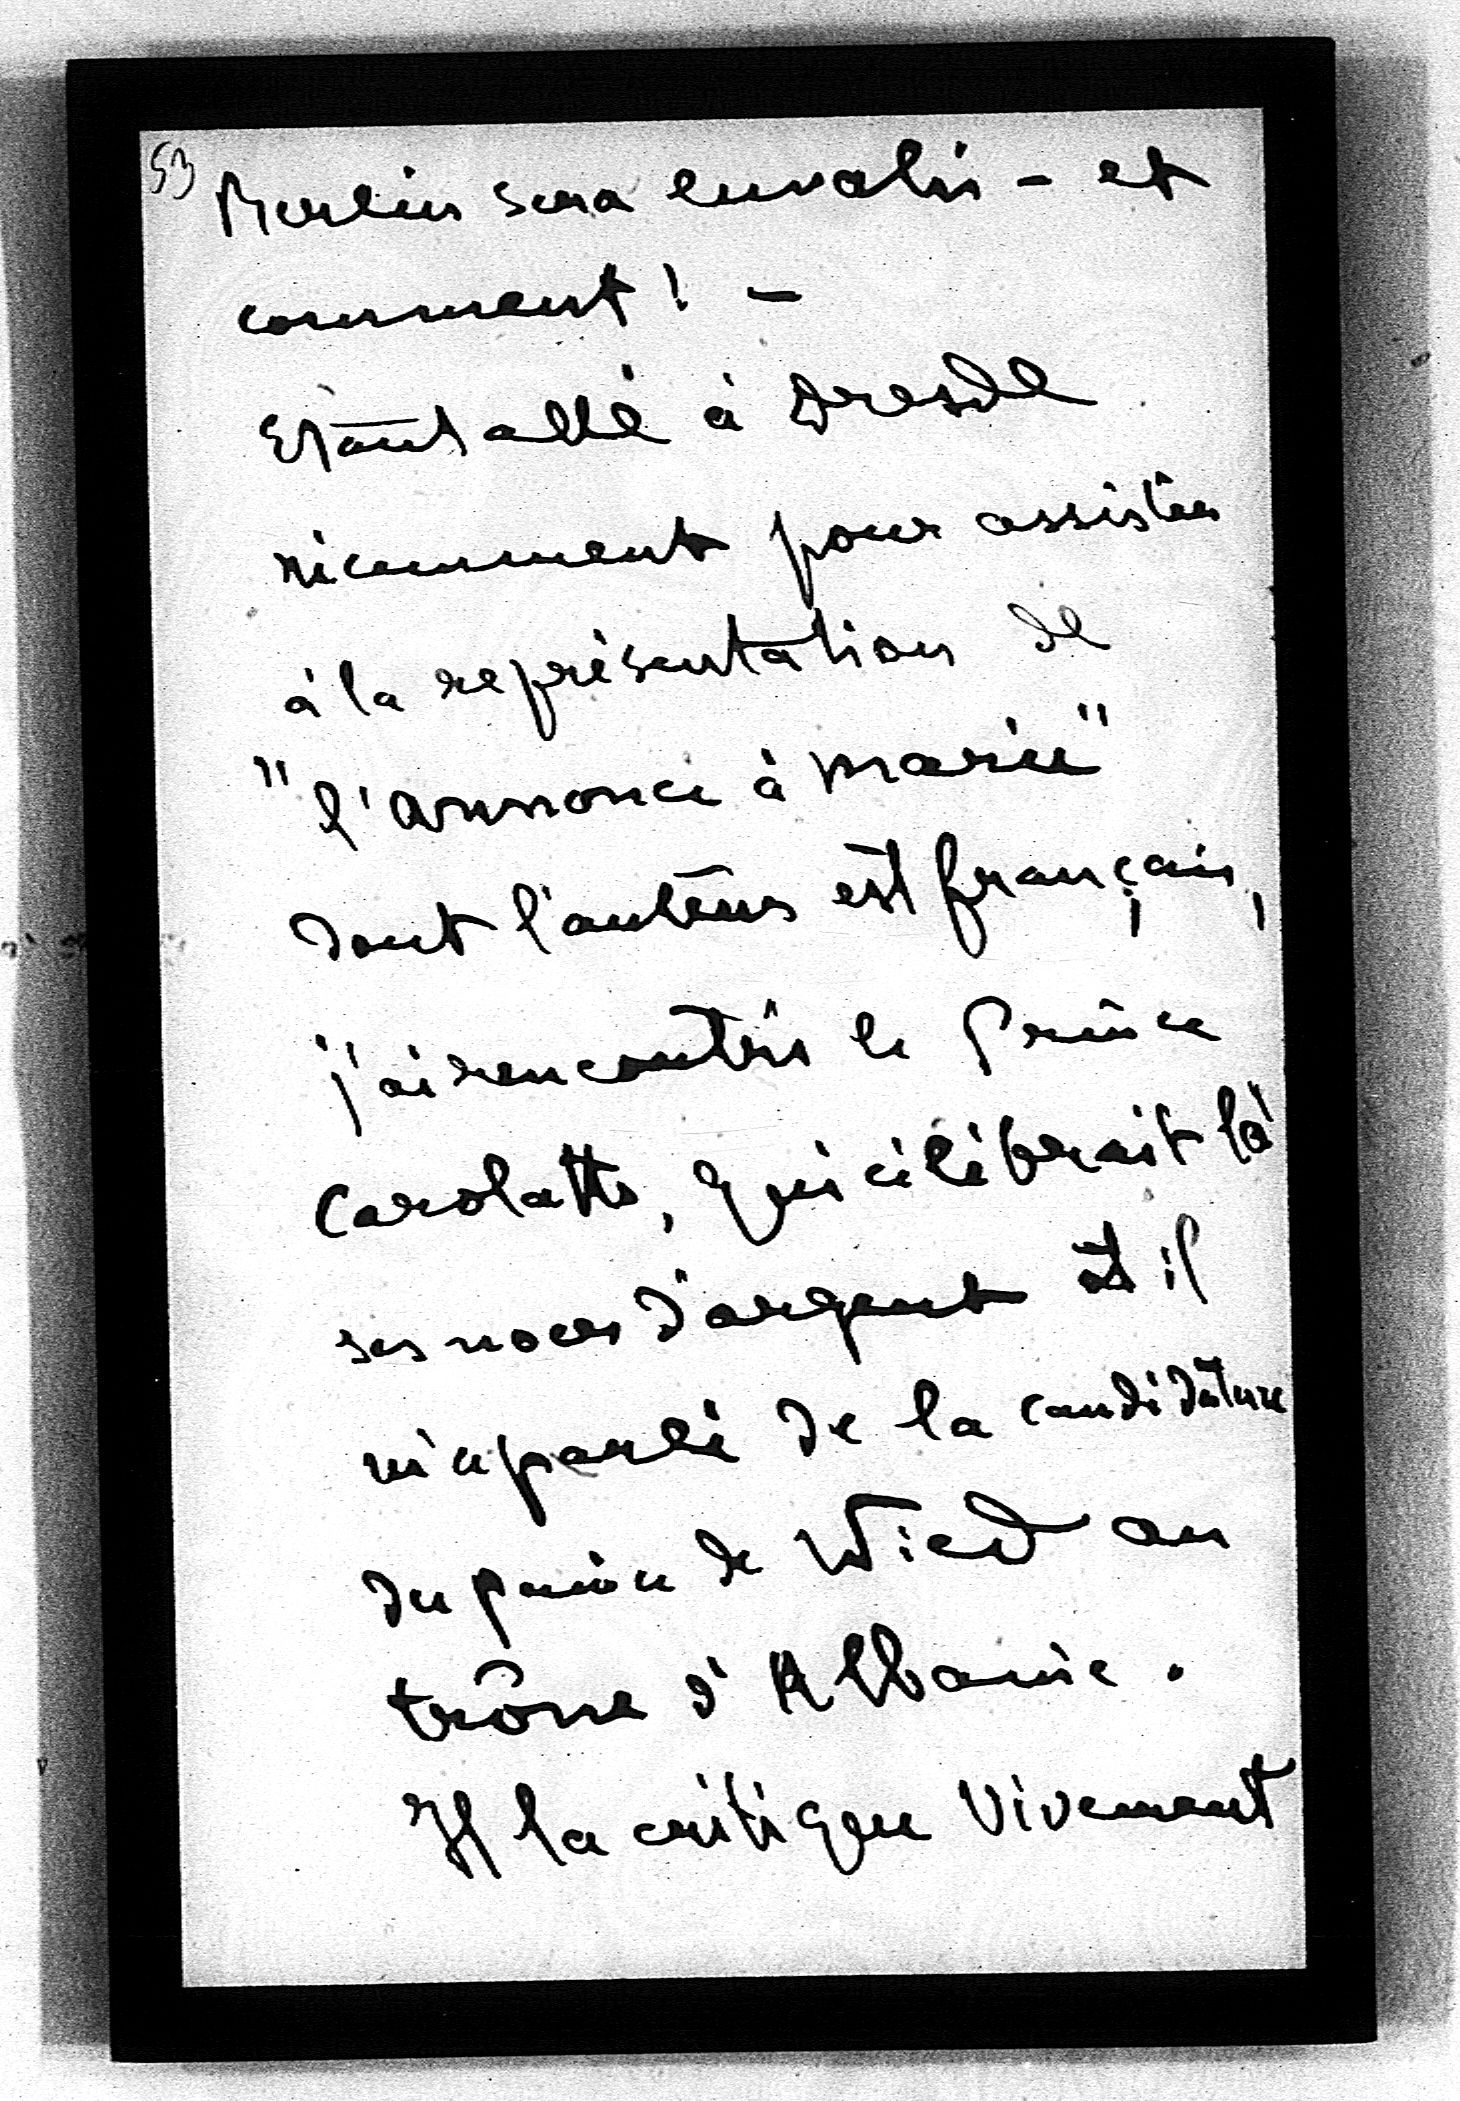 53
Berlin sera envahi - et
comment! -
Etant allé à Dresde
récemment pour assister
à la représentation de
"l'annonce à Marie"
dont l'auteur est français,
j'ai rencontré le Prince
Carolath, qui célébrait là
ses noces d'argent et il
m'a parlé de la candidature
du prince de Wied au
trône d'Albanie.
Il la critique vivement